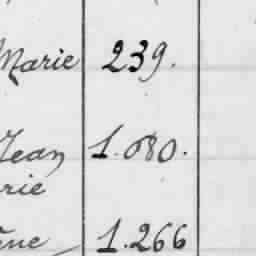 Marie 239.
Jean 1.080.
rie
ène 1.266